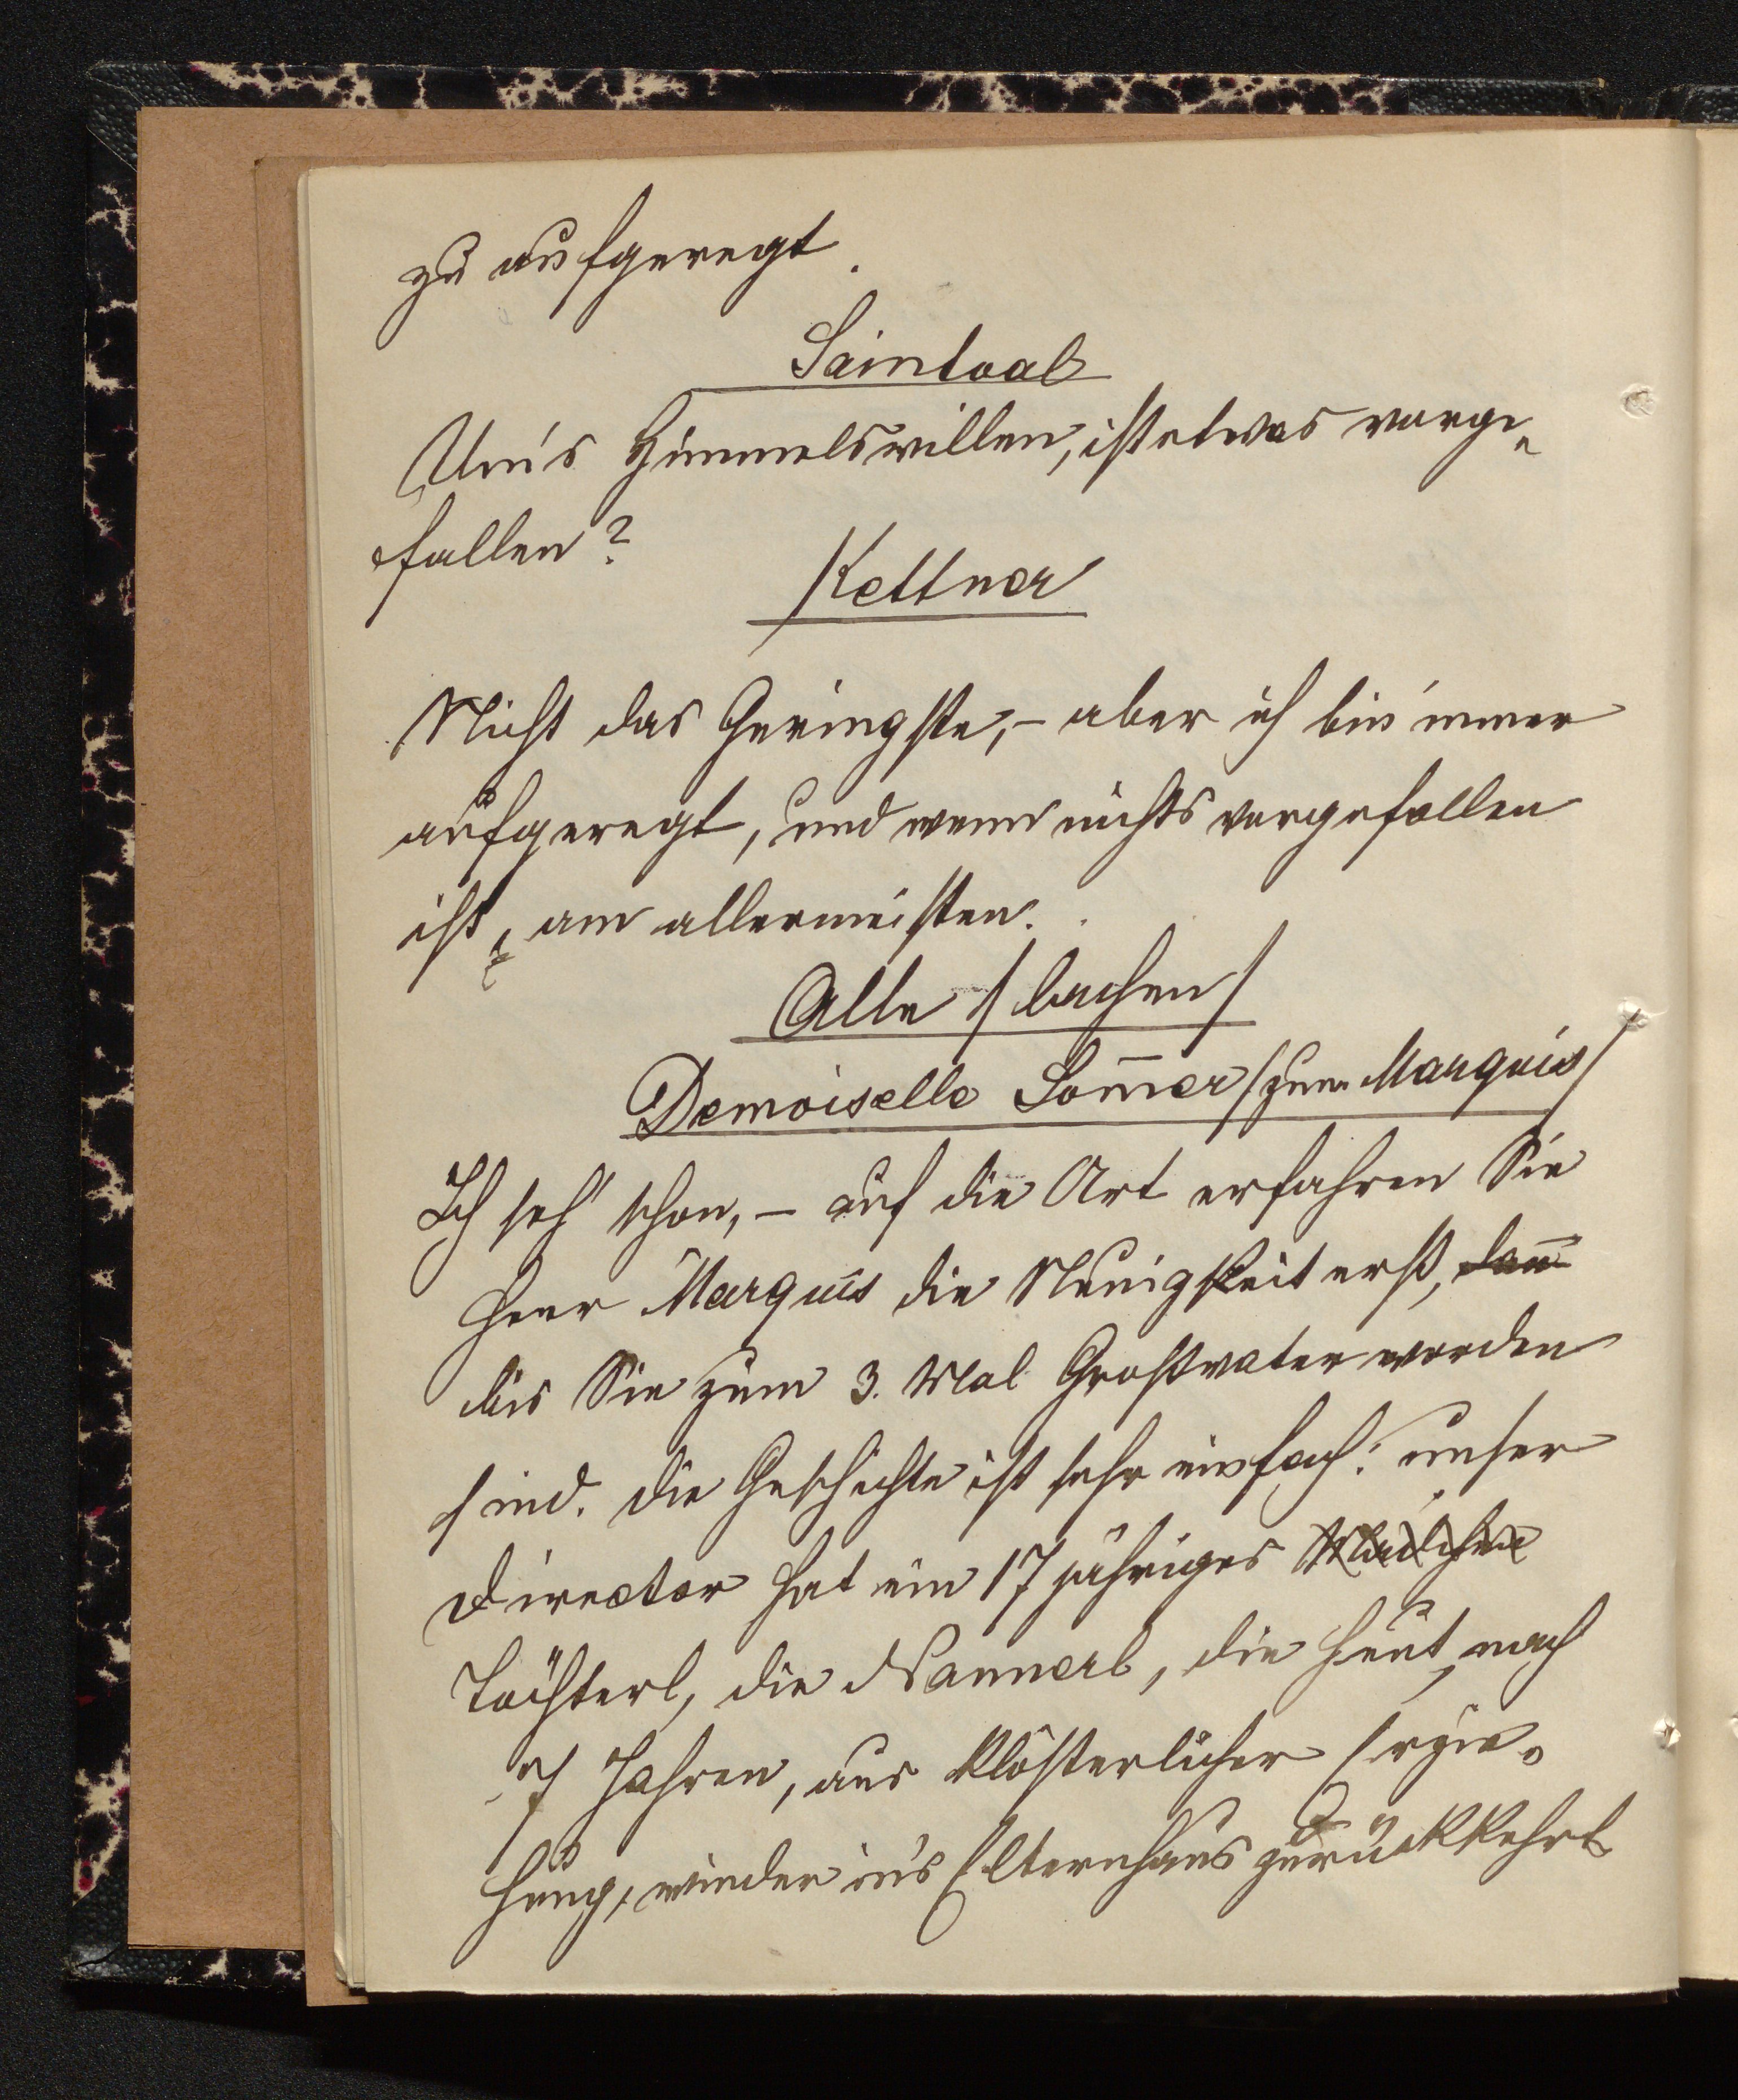 zu aufgeregt.
Saintval
Um's Himmelswillen, ist etwas vorge-
fallen?
Kettner
Nicht das Geringste, – aber ich bin immer
aufgeregt, und wenn nichts vorgefallen
ist, am allermeisten.
Alle /lachen/
Demoiselle Som̄er /zum Marquis/
Ich seh' schon, – auf die Art erfahren Sie
Herr Marquis die Neuigkeit erst, dan̄
bis Sie zum 3. Mal Großvater worden
sind. Die Geschichte ist sehr einfach: unser
Director hat ein 17 jähriges Mädchen
Töchterl, die Nannerl, die heut, nach
7 Jahren, aus klösterlicher Erzie-
hung, wieder in's Elternhaus zurückkehrt